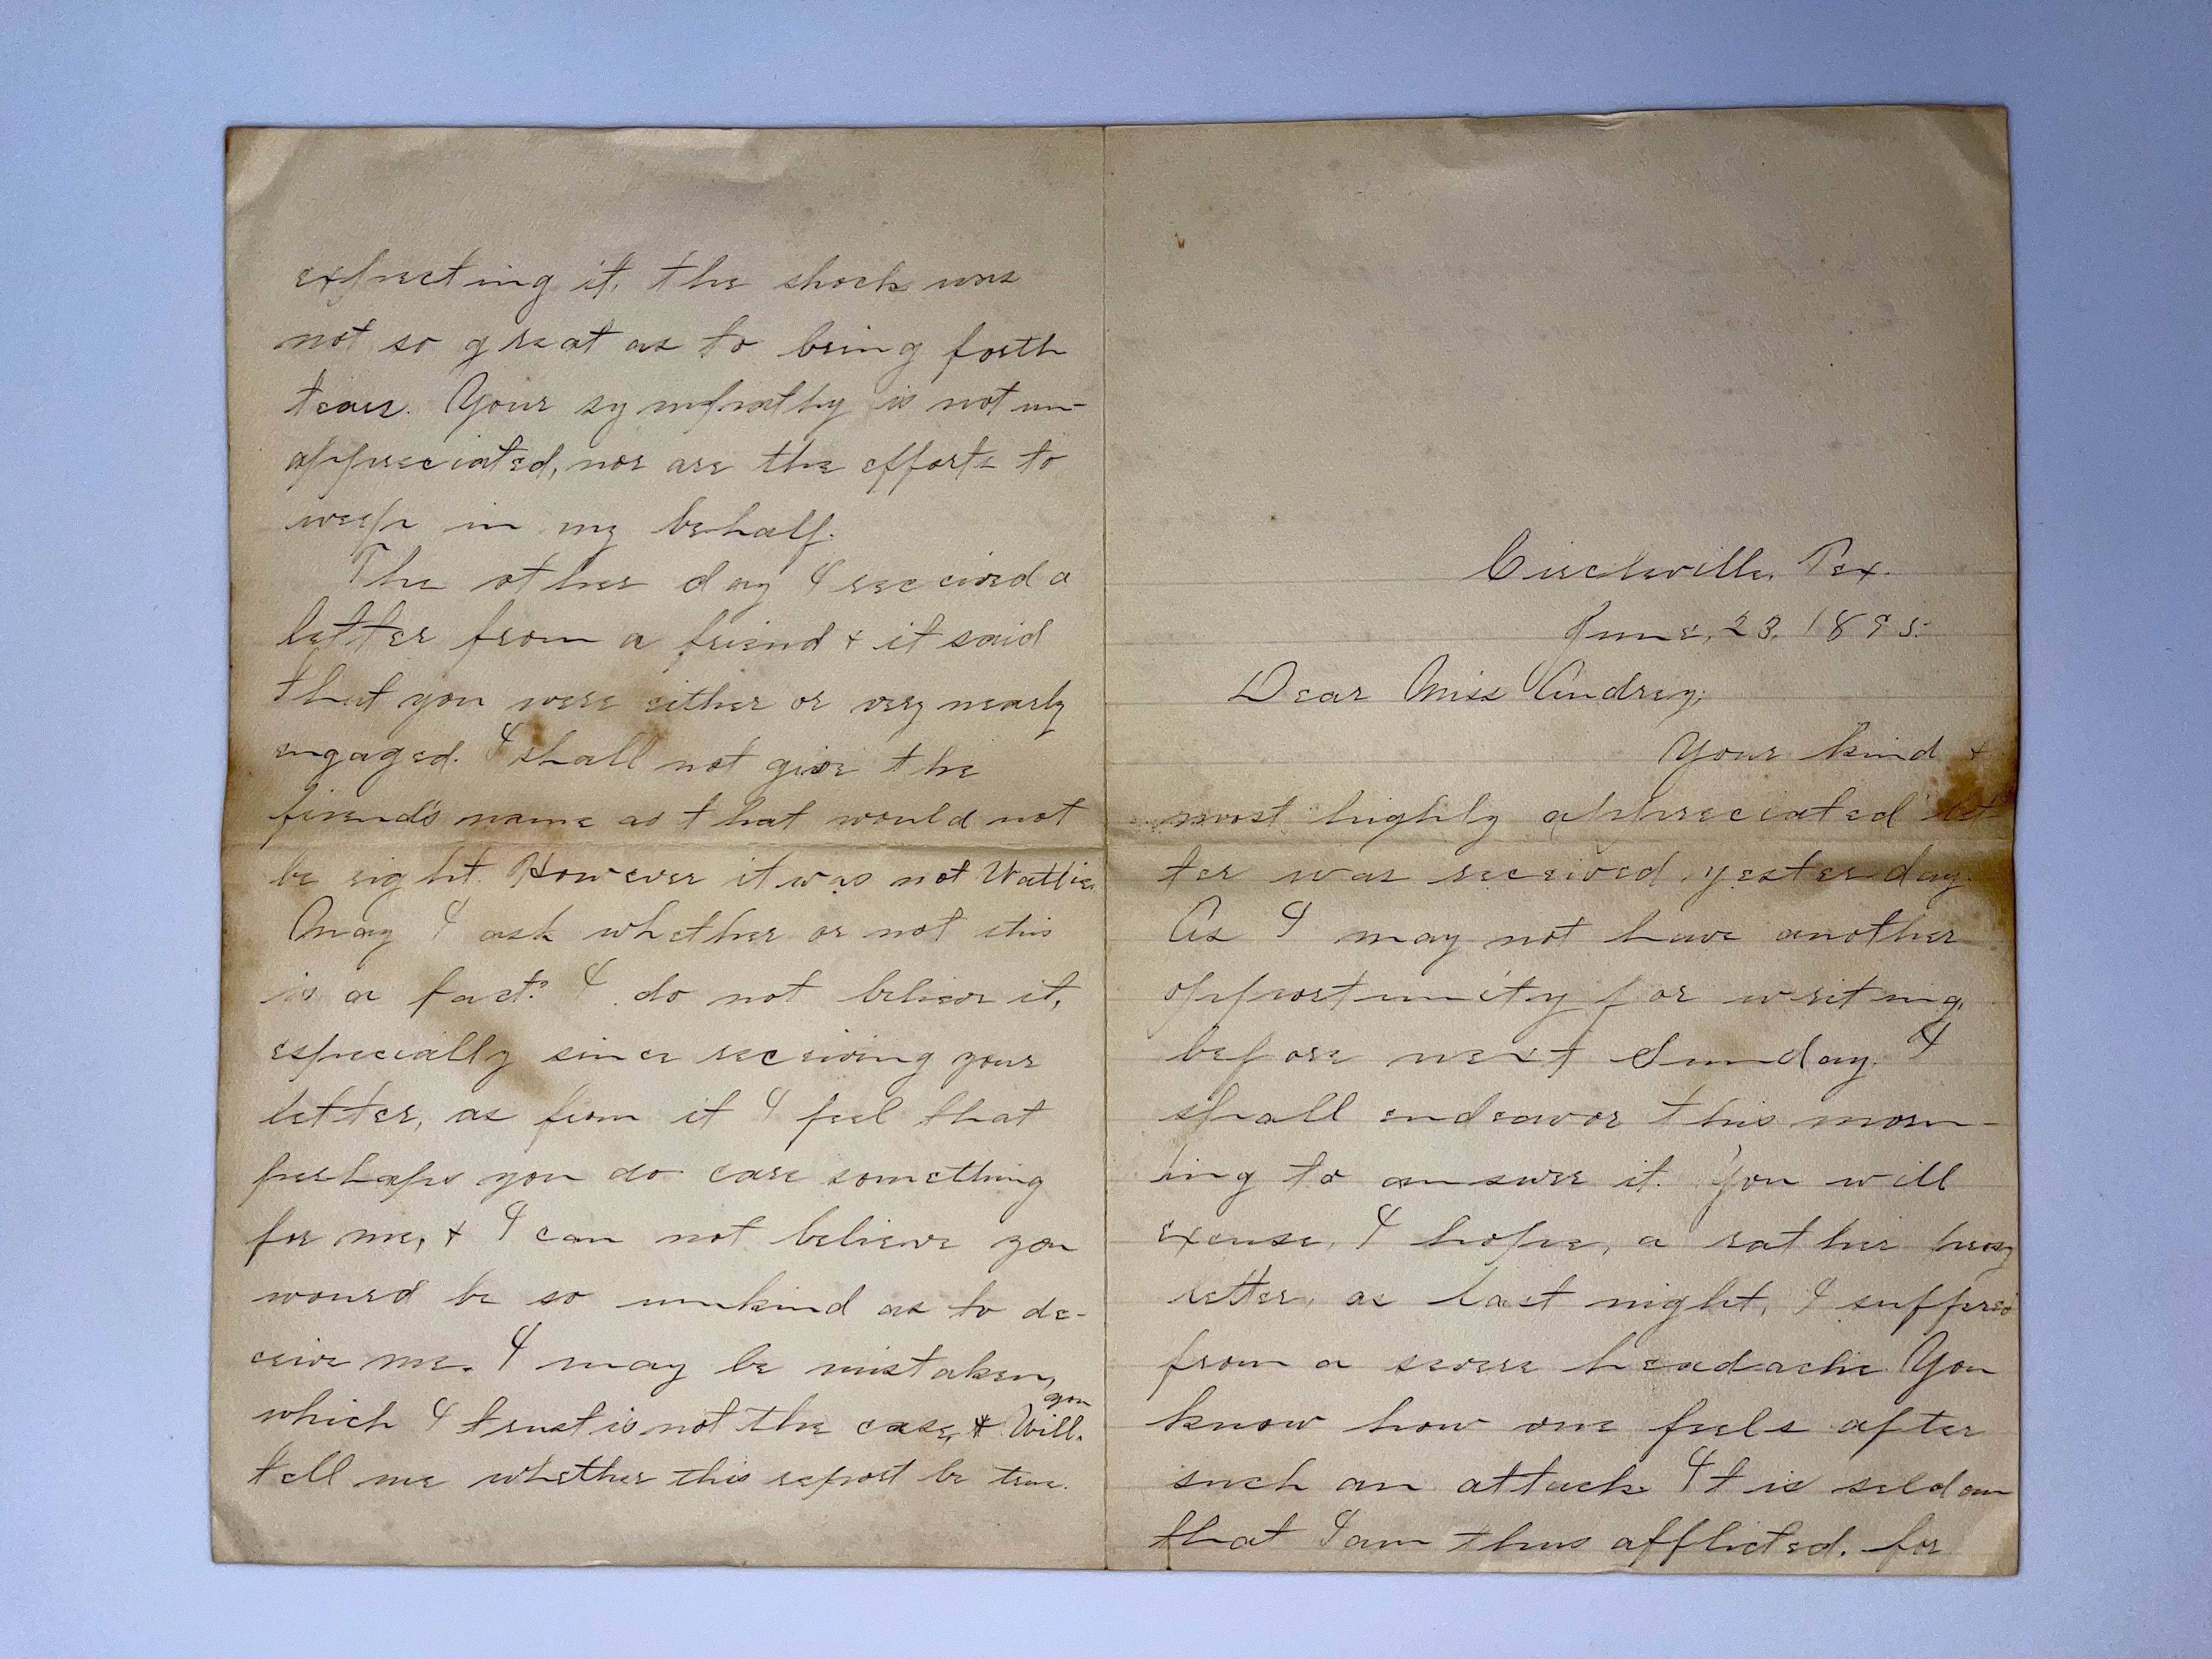 Circleville, Tex.
June, 23. 1895.
Dear Miss Audrey;
Your kind &
most highly appreciated let-
ter was received, yesterday.
As I may not have another
opportunity for writing,
before next Sunday. I
shall endeavor this morn-
ing to answer it. You will
excuse, I hope, a rather prosy
letter, as last night, I suffered
from a severe headache. You
know how one feels after
such an attack. It is seldom
that I am thus afflicted. for
expecting it, the shock was
not so great as to bring forth
tears. Your sympathy is not un-
appreciated, nor are the efforts to
weep in my behalf.
The other day I received a
letter from a friend & it said
that you were either or very nearly
engaged. I shall not give the
friend's name as that would not
be right. However it was not
May I ask whether or not this
is a fact? I do not believe it,
especially since receiving your
letter, as from it I feel that
perhaps you do care something
for me, & I can not believe you
would be so unkind as to de-
ceive me. I may be mistaken,
which I trust is not the case, & you will.
tell me whether this report be true.